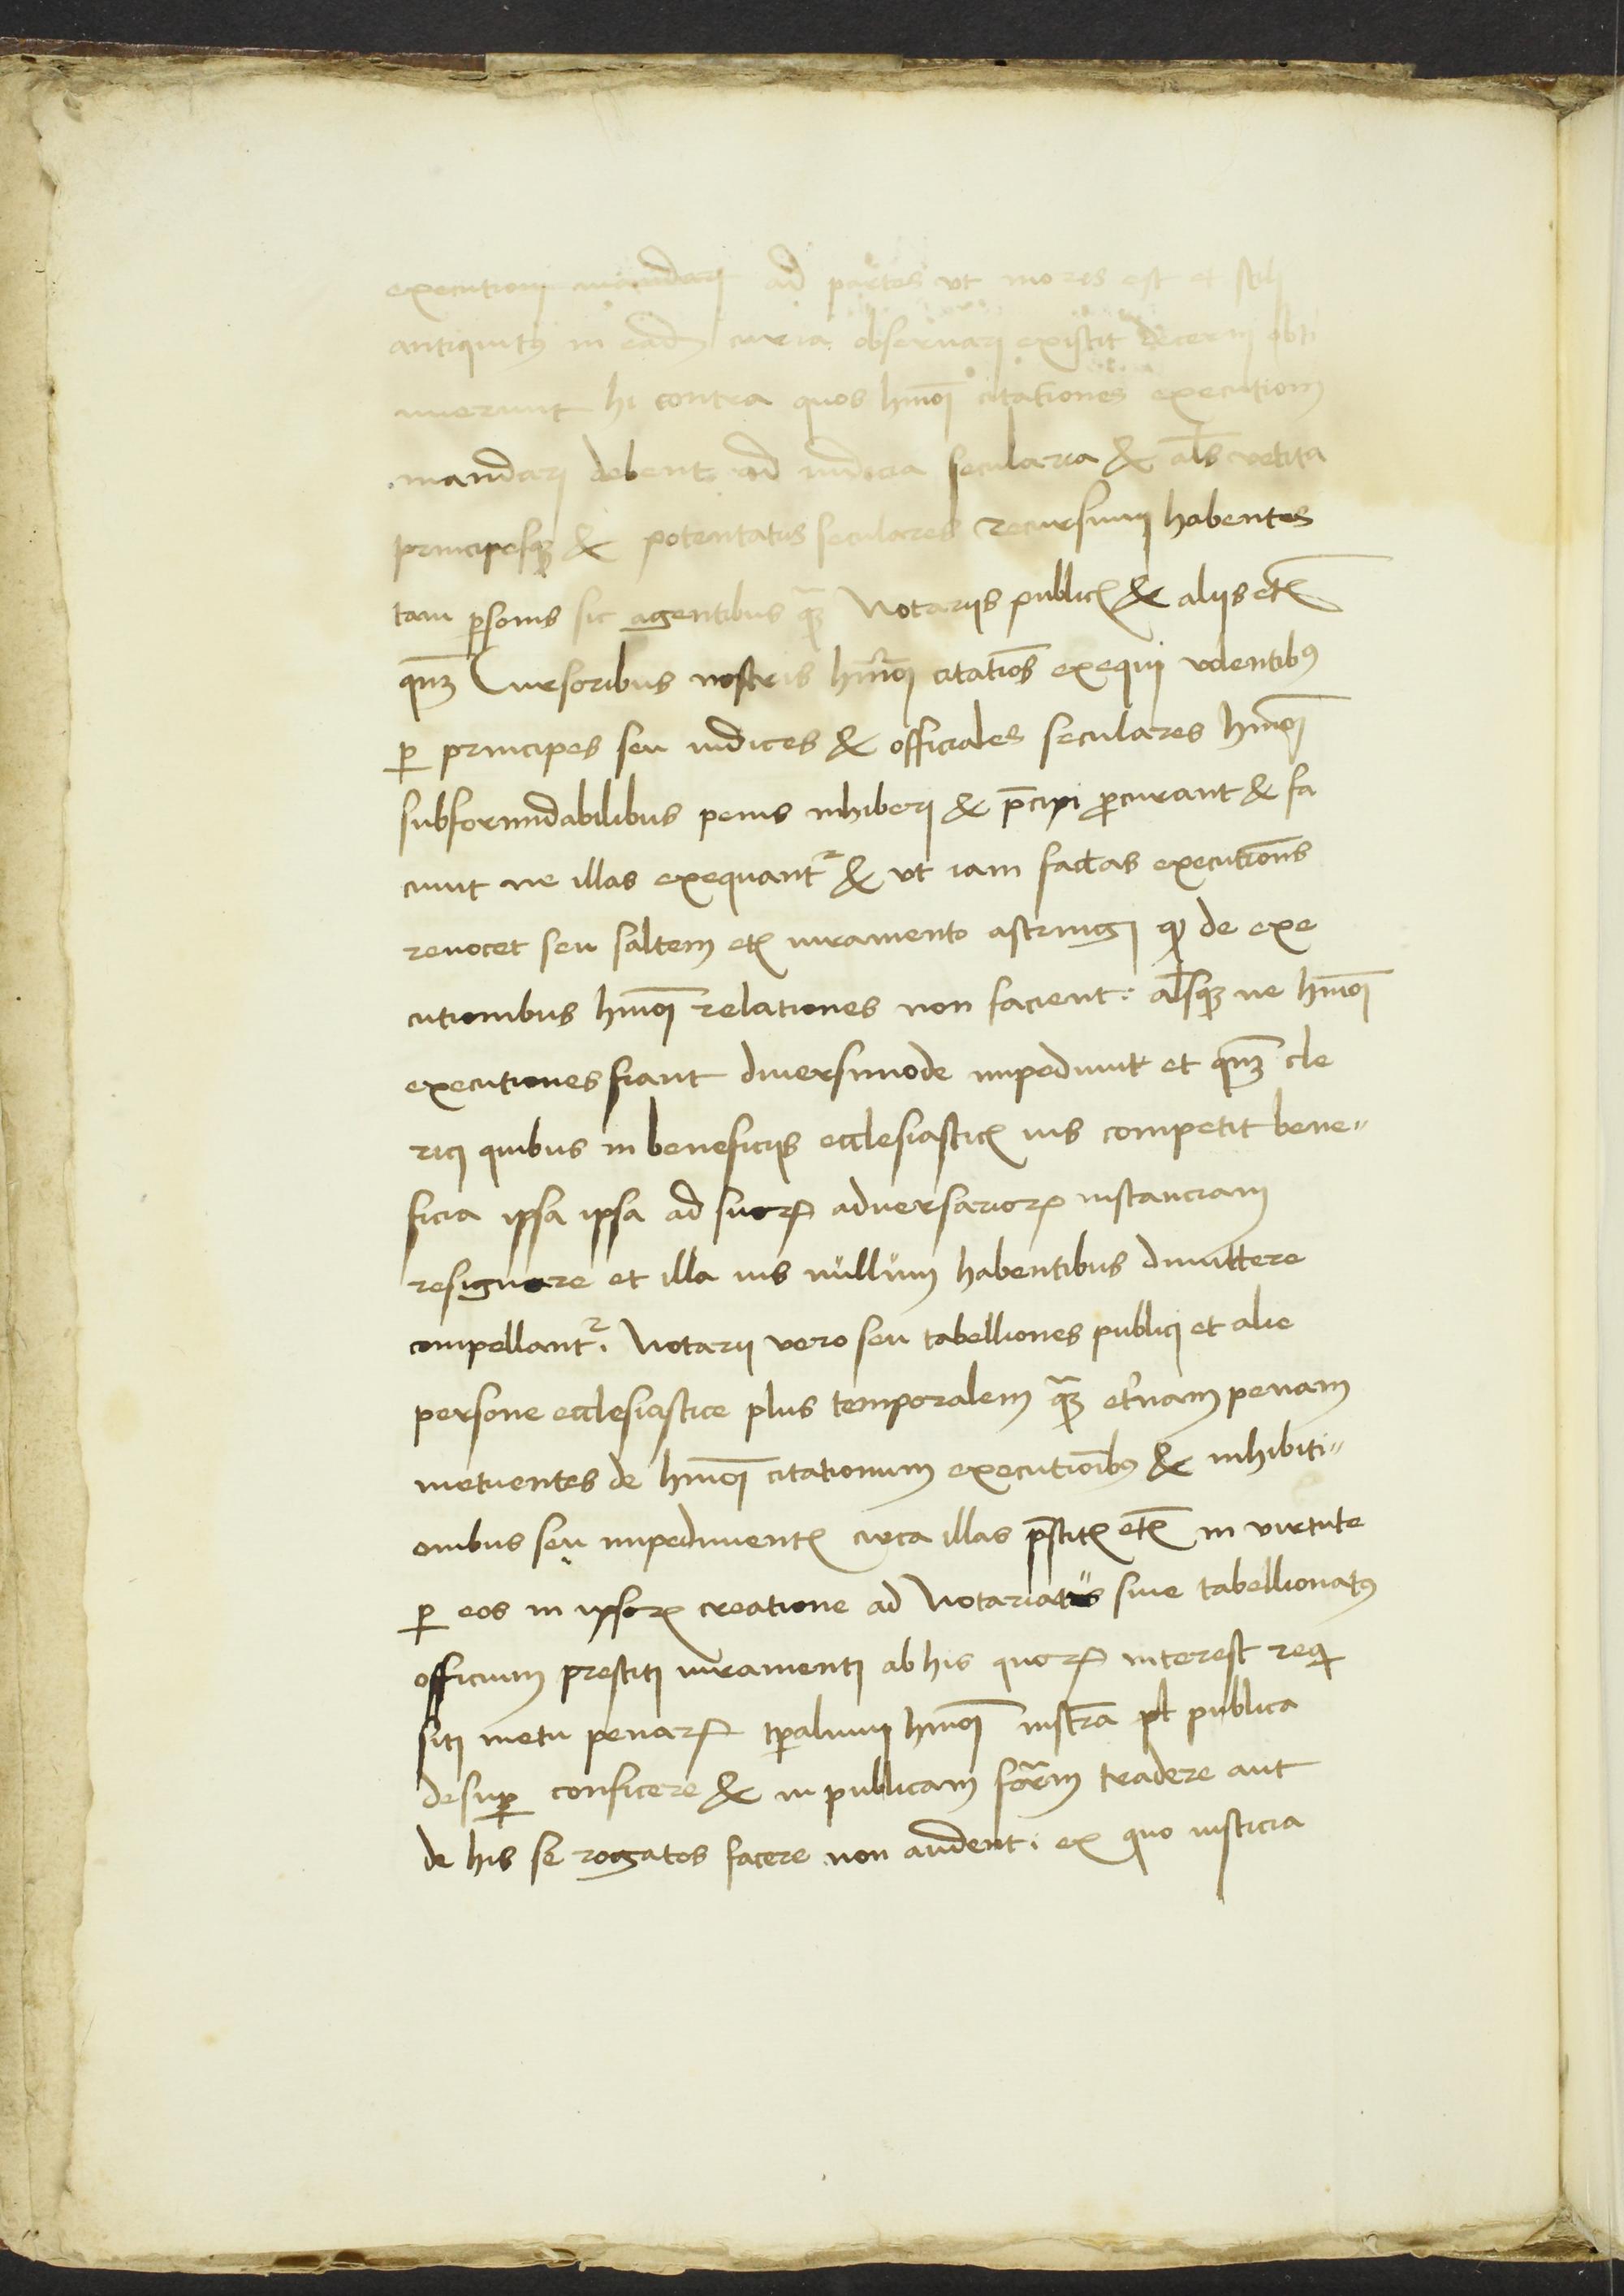 executioni mandari ad partes vt moris est et stili
antiquitꝰ in eadē curia obseruari existit decerni obti
nuerunt hi contra quos hmōi citationes executioni
mandari debent ad iudicia secularia & al̄s vetita
principesqꝫ & potentatus seculares recursum habentes
tam ꝑsonis sic agentibus qꝫ̄ Notariis publicꝭ & aliis etꝭ
qm̄ Cursoribus nostris hmōi citatiōs exequi volentibꝰ
ꝑ principes seu iudices & officiales seculares hmōi
sub formidabilibus penis inhiberi & p̄cipi ꝓcurant & fa
ciunt ne illas exequant᷑ & vt iam factas executiōns
reuocet seu saltem etꝭ iuramento astringi ꝙ de exe
cutionibus hmōi relationes non facient: al̄sqꝫ ne hmōi
executiones fiant diuersimode impediunt et qm̄ cle
rici quibus in beneficiis ecclesiasticꝭ ius competit bene-
ficia ipsa ipsa ad suoꝝ aduersarioꝝ instanciam
resignare et illa ius nullum habentibus dimittere
compellant᷑. Notarii vero seu tabelliones publici et alie
persone ecclesiastice plus temporalem qꝫ̄ et'nam penam
metuentes de hmōi citationum executiōibꝰ & inhibiti-
onibus seu impedimentꝭ circa illas p̄stitꝭ etꝭ in virtute
ꝑ eos in ipsoꝝ creatione ad Notariatus siue tabellionatꝰ
officium prestiti iuramenti ab his quoꝝ interest reqi
siti metu penaꝝ tꝑalium hmōi instr̄a pt publica
desuꝑ conficere & in publicam for̄m tradere aut
de his se rogatos facere non audent. ex quo iusticia